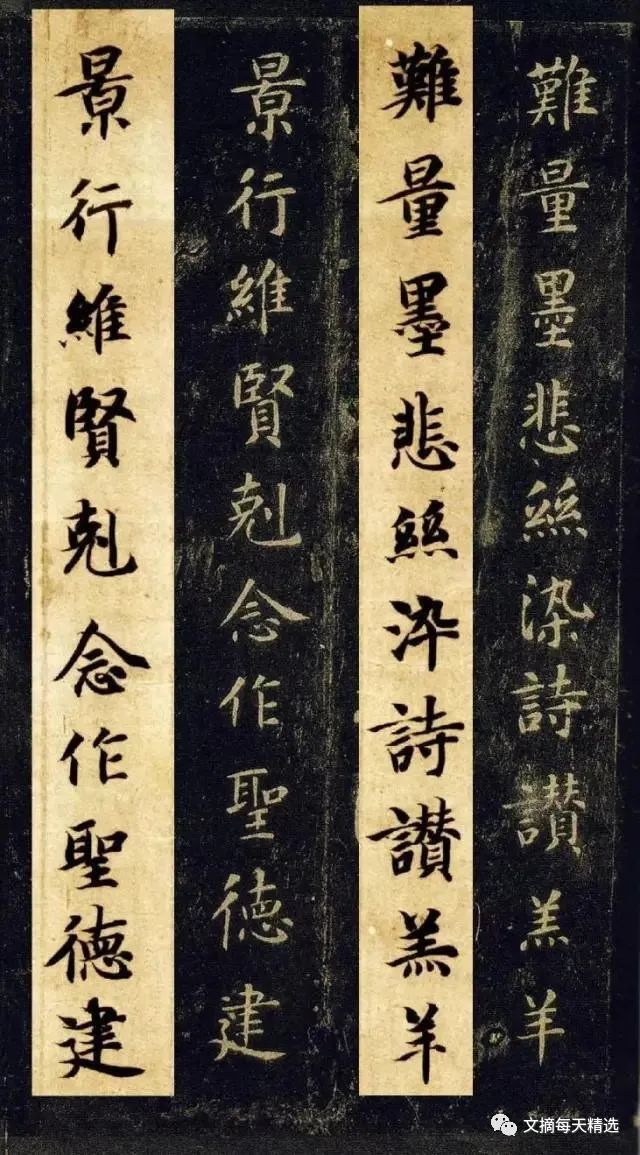 難量墨悲絲染詩讃羔羊
難量墨悲絲染詩讃羔羊
景行維賢剋念作聖德建
景行維賢剋念作聖德建
文摘每天精选